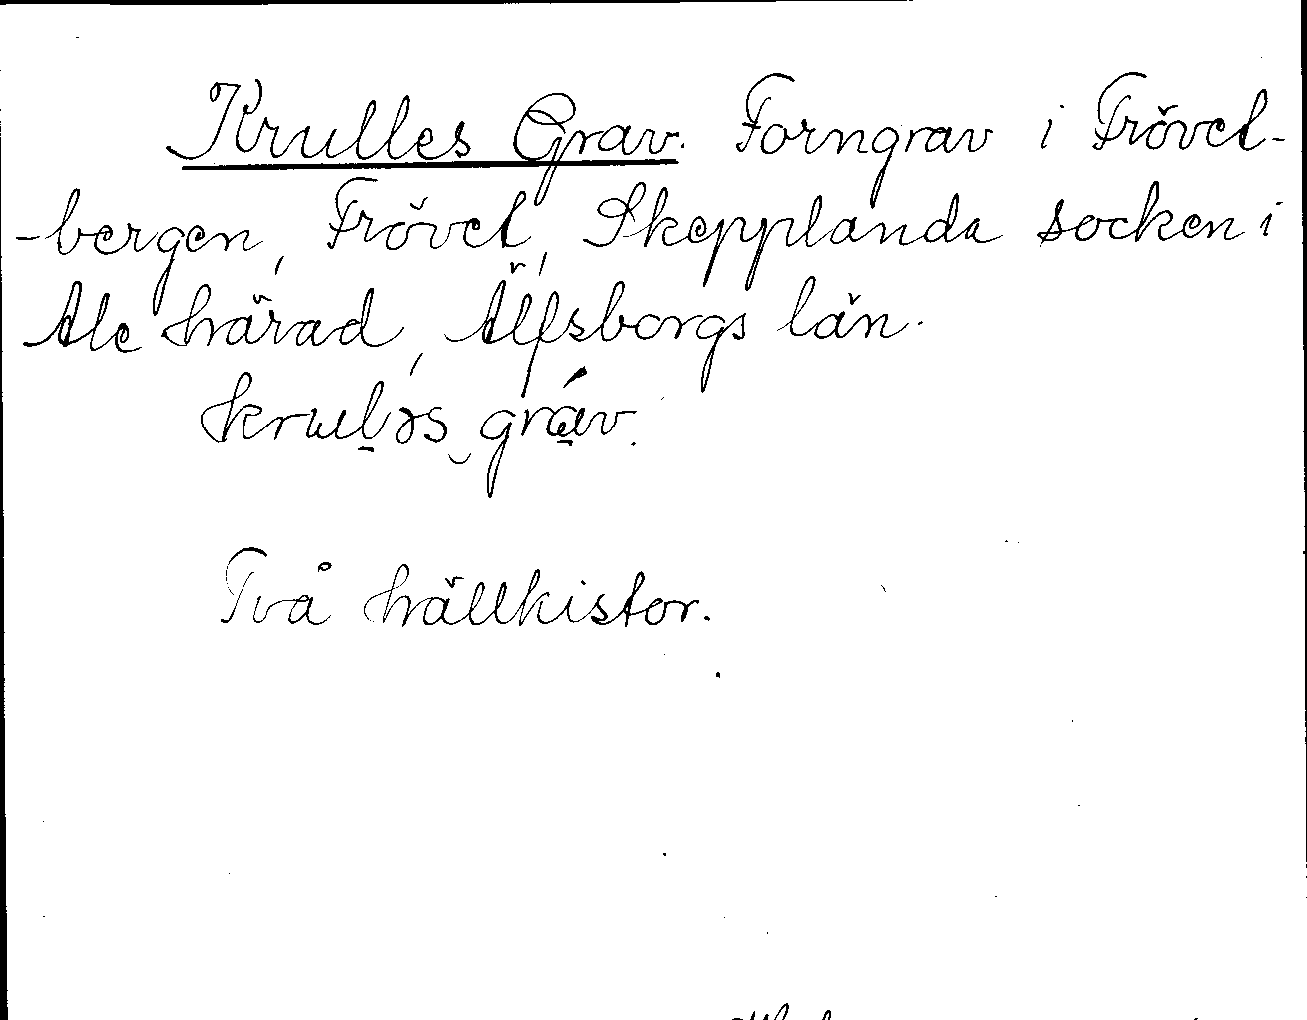 Krulles Grav. Forngrav i Frövet-
-bergen, Frövet, Skepplanda socken i
Ale härad, Älfsborgs län.
krul̠əs‿grá̠v.
Två hällkistor.